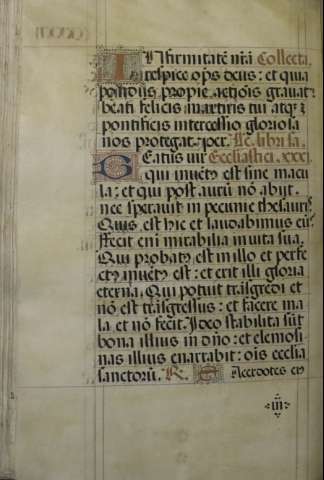 Infirmitatē nr̄ā Collecta.
respice op̄s deus: et quia
pondus propie actiōis grauat:
beati felicis martiris tui atqꝫ
pontificis intercessio gloriosa
nos protegat. per. Lc̄. libri sa.
Beatus uir Ecclesiastici. xxxi.
qui inuēt᷒ est sine macu
la: et qui post aurū nō abijt.
nec sperauit in pecunie thesauris.
Quis est hic et laudabimus eū:
fecit eni mirabilia in uita sua.
Qui probat᷒ est in illo et perfe
ct᷒ inuēt᷒ est: et erit illi gloria
eterna. Qui potuit trāsgredi et
nō est trāsgressus: et facere ma
la et nō fecit. Ideo stabilita sūt
bona illius in dn̄o: et elemosi
nas illius enarrabit: oīs ecclīa
sanctorū. R. Sacerdotes ei᷒